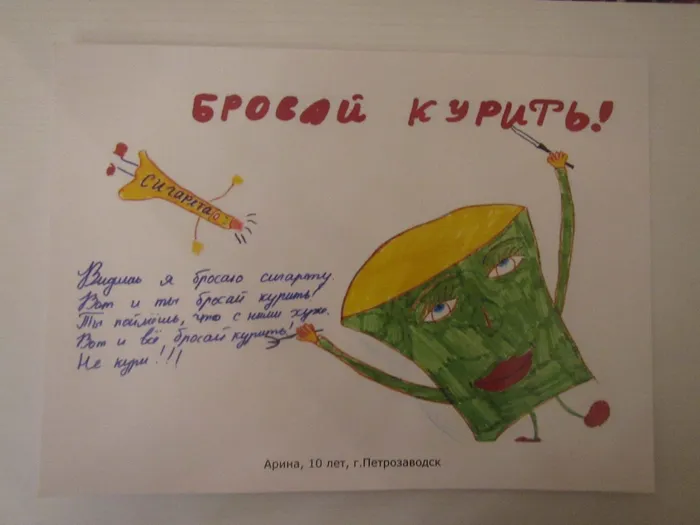 БРОСАЙ КУРИТЬ!
Сигарета
Видишь я бросаю сигарету.
Вот и ты бросай курить!
Ты поймёшь, что с ними хуже.
Вот и всё бросай курить!
Не кури!!!
Арина, 10 лет, г.Петрозаводск